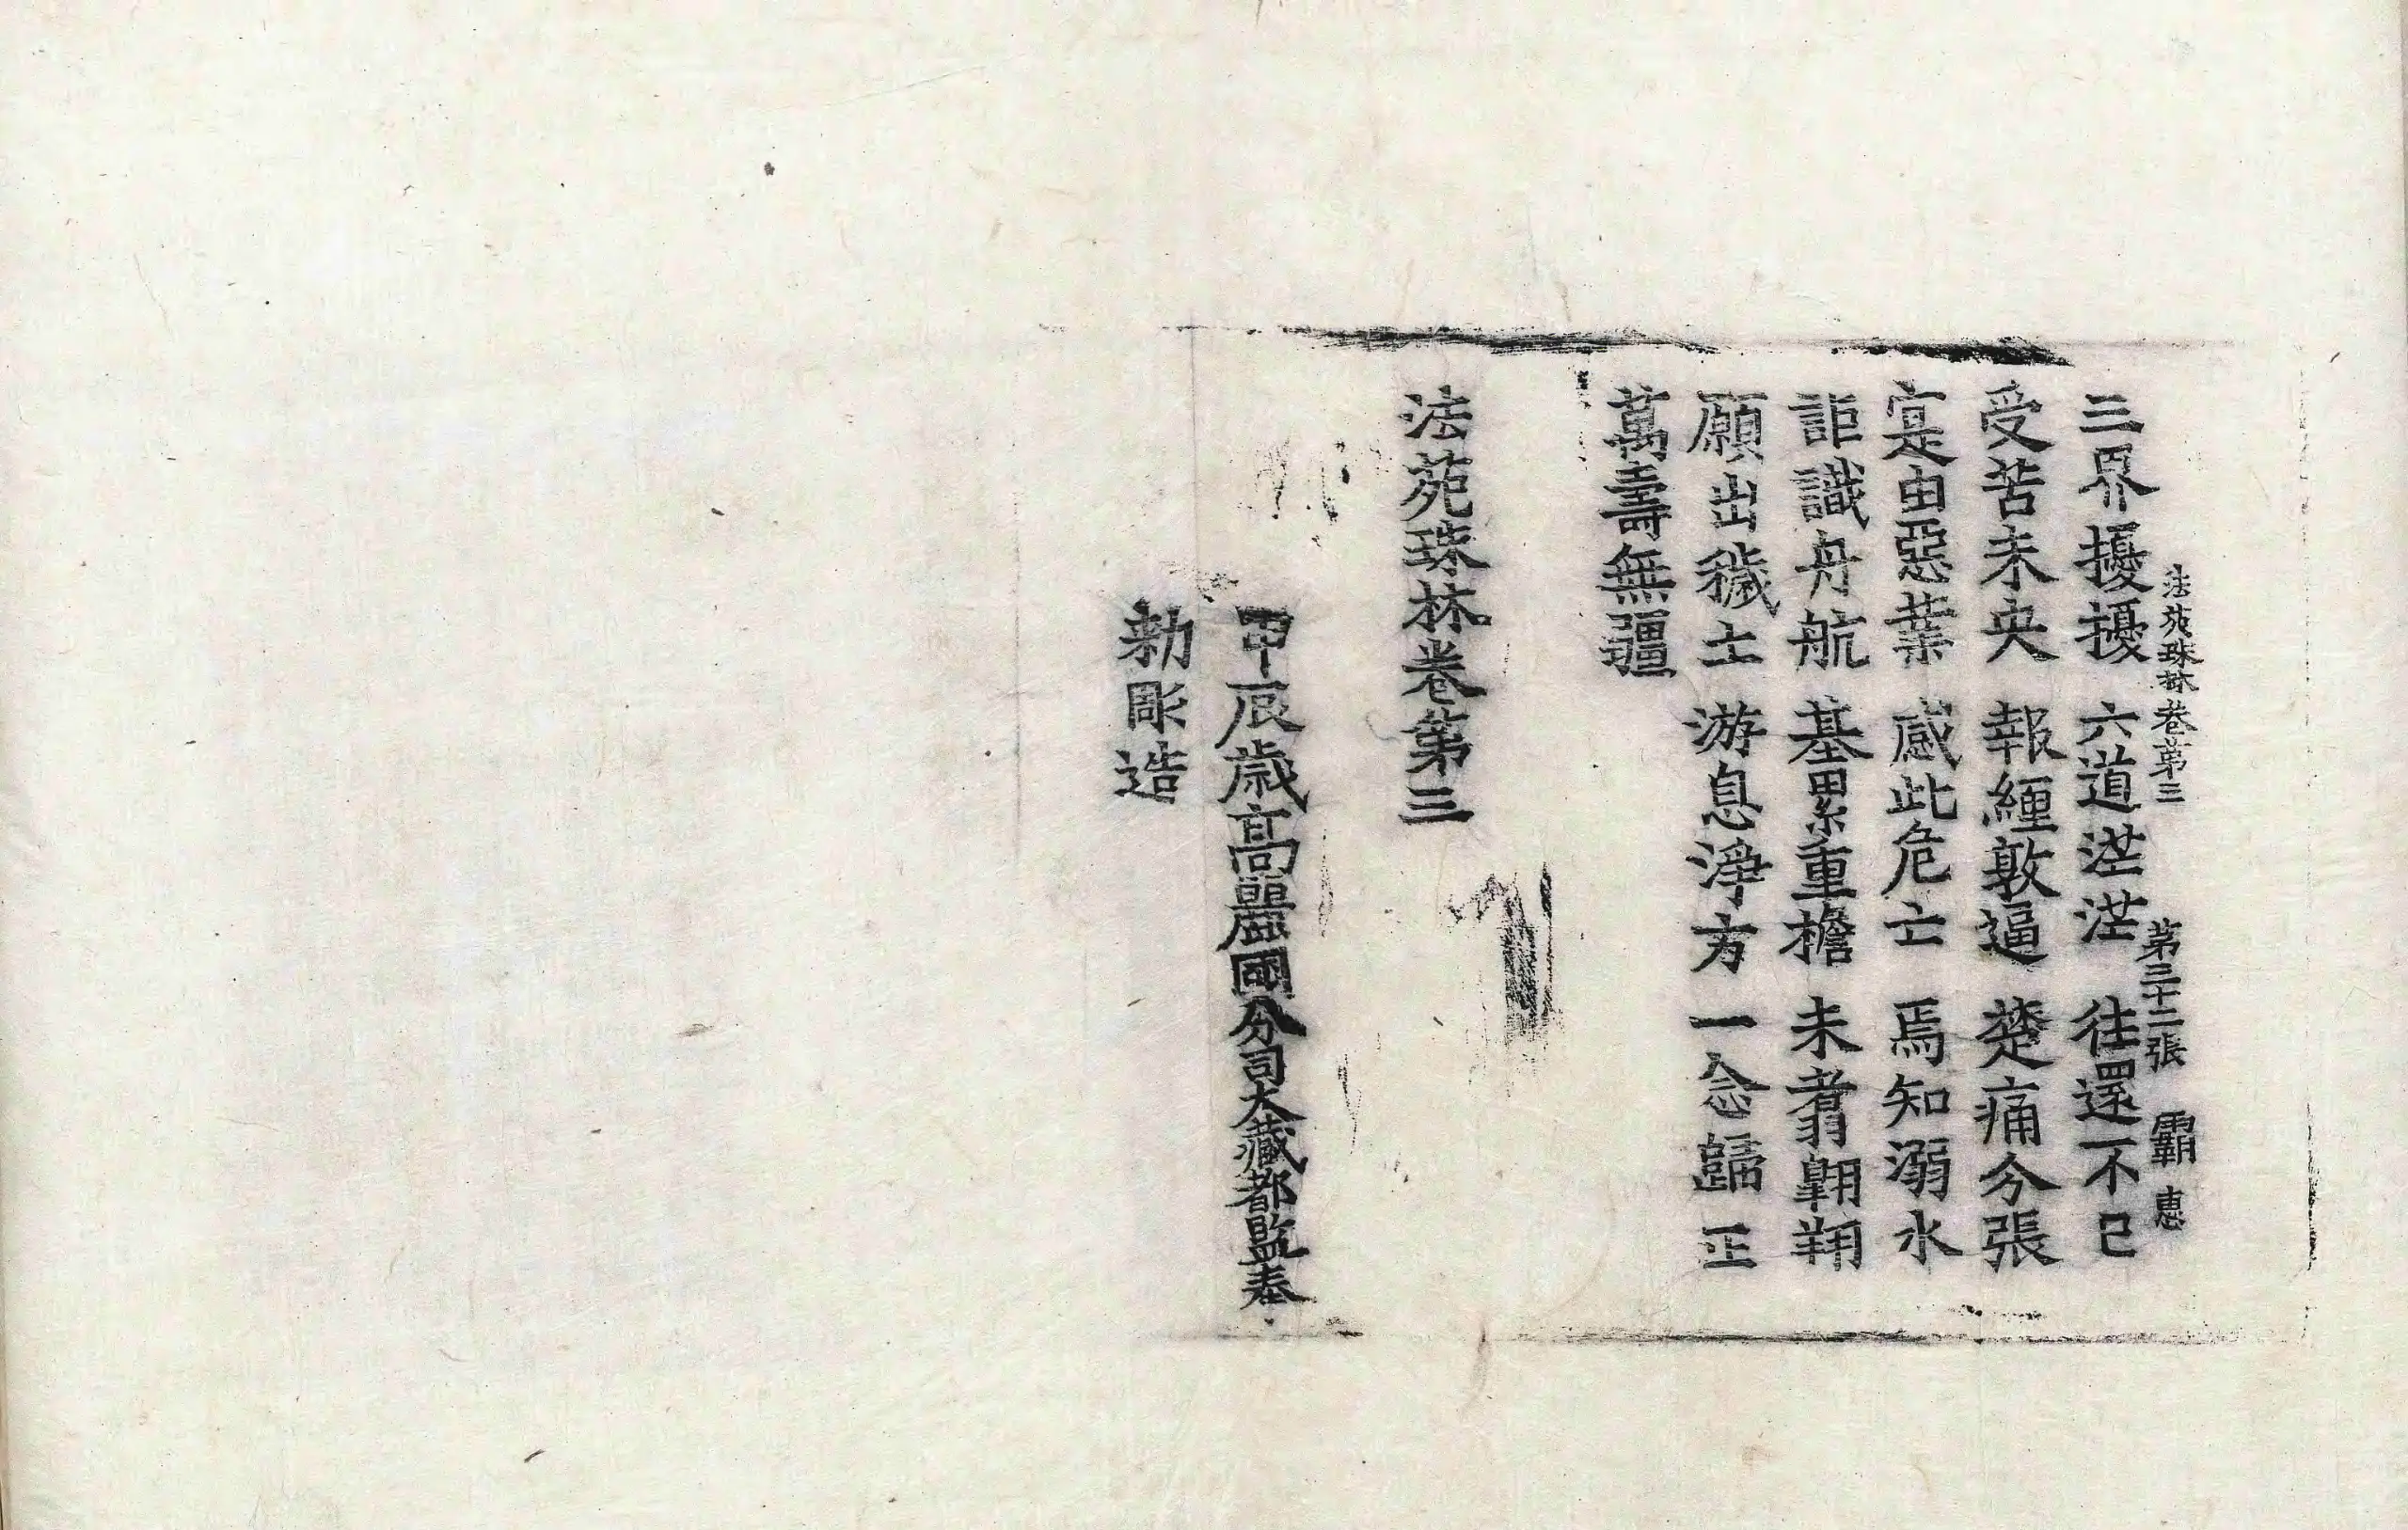 法苑珠林卷第三 第三十二張 霸 惠
三界擾擾 六道茫茫 往還不已
受苦未央 報纏敦逼 楚痛分張
寔由惡業 感此危亡 焉知溺水
詎識舟航 基累重檐 未翥翺翔
願出穢土 游息淨方 一念歸正
萬壽無疆
法苑珠林卷第三
甲辰歲高麗國分司大藏都監奉
勅彫造